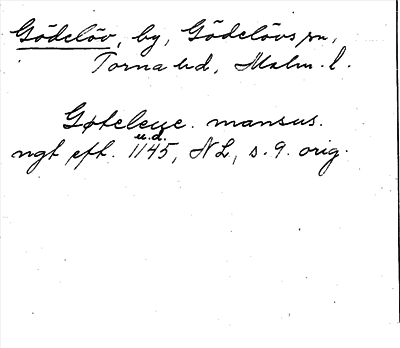 Gödelöv, by, Gödelövs sn,
Torna hd, Malm. l.
Gøteleue. mansus.
u.d.
ngt eft. 1145, NL, s. 9. orig.